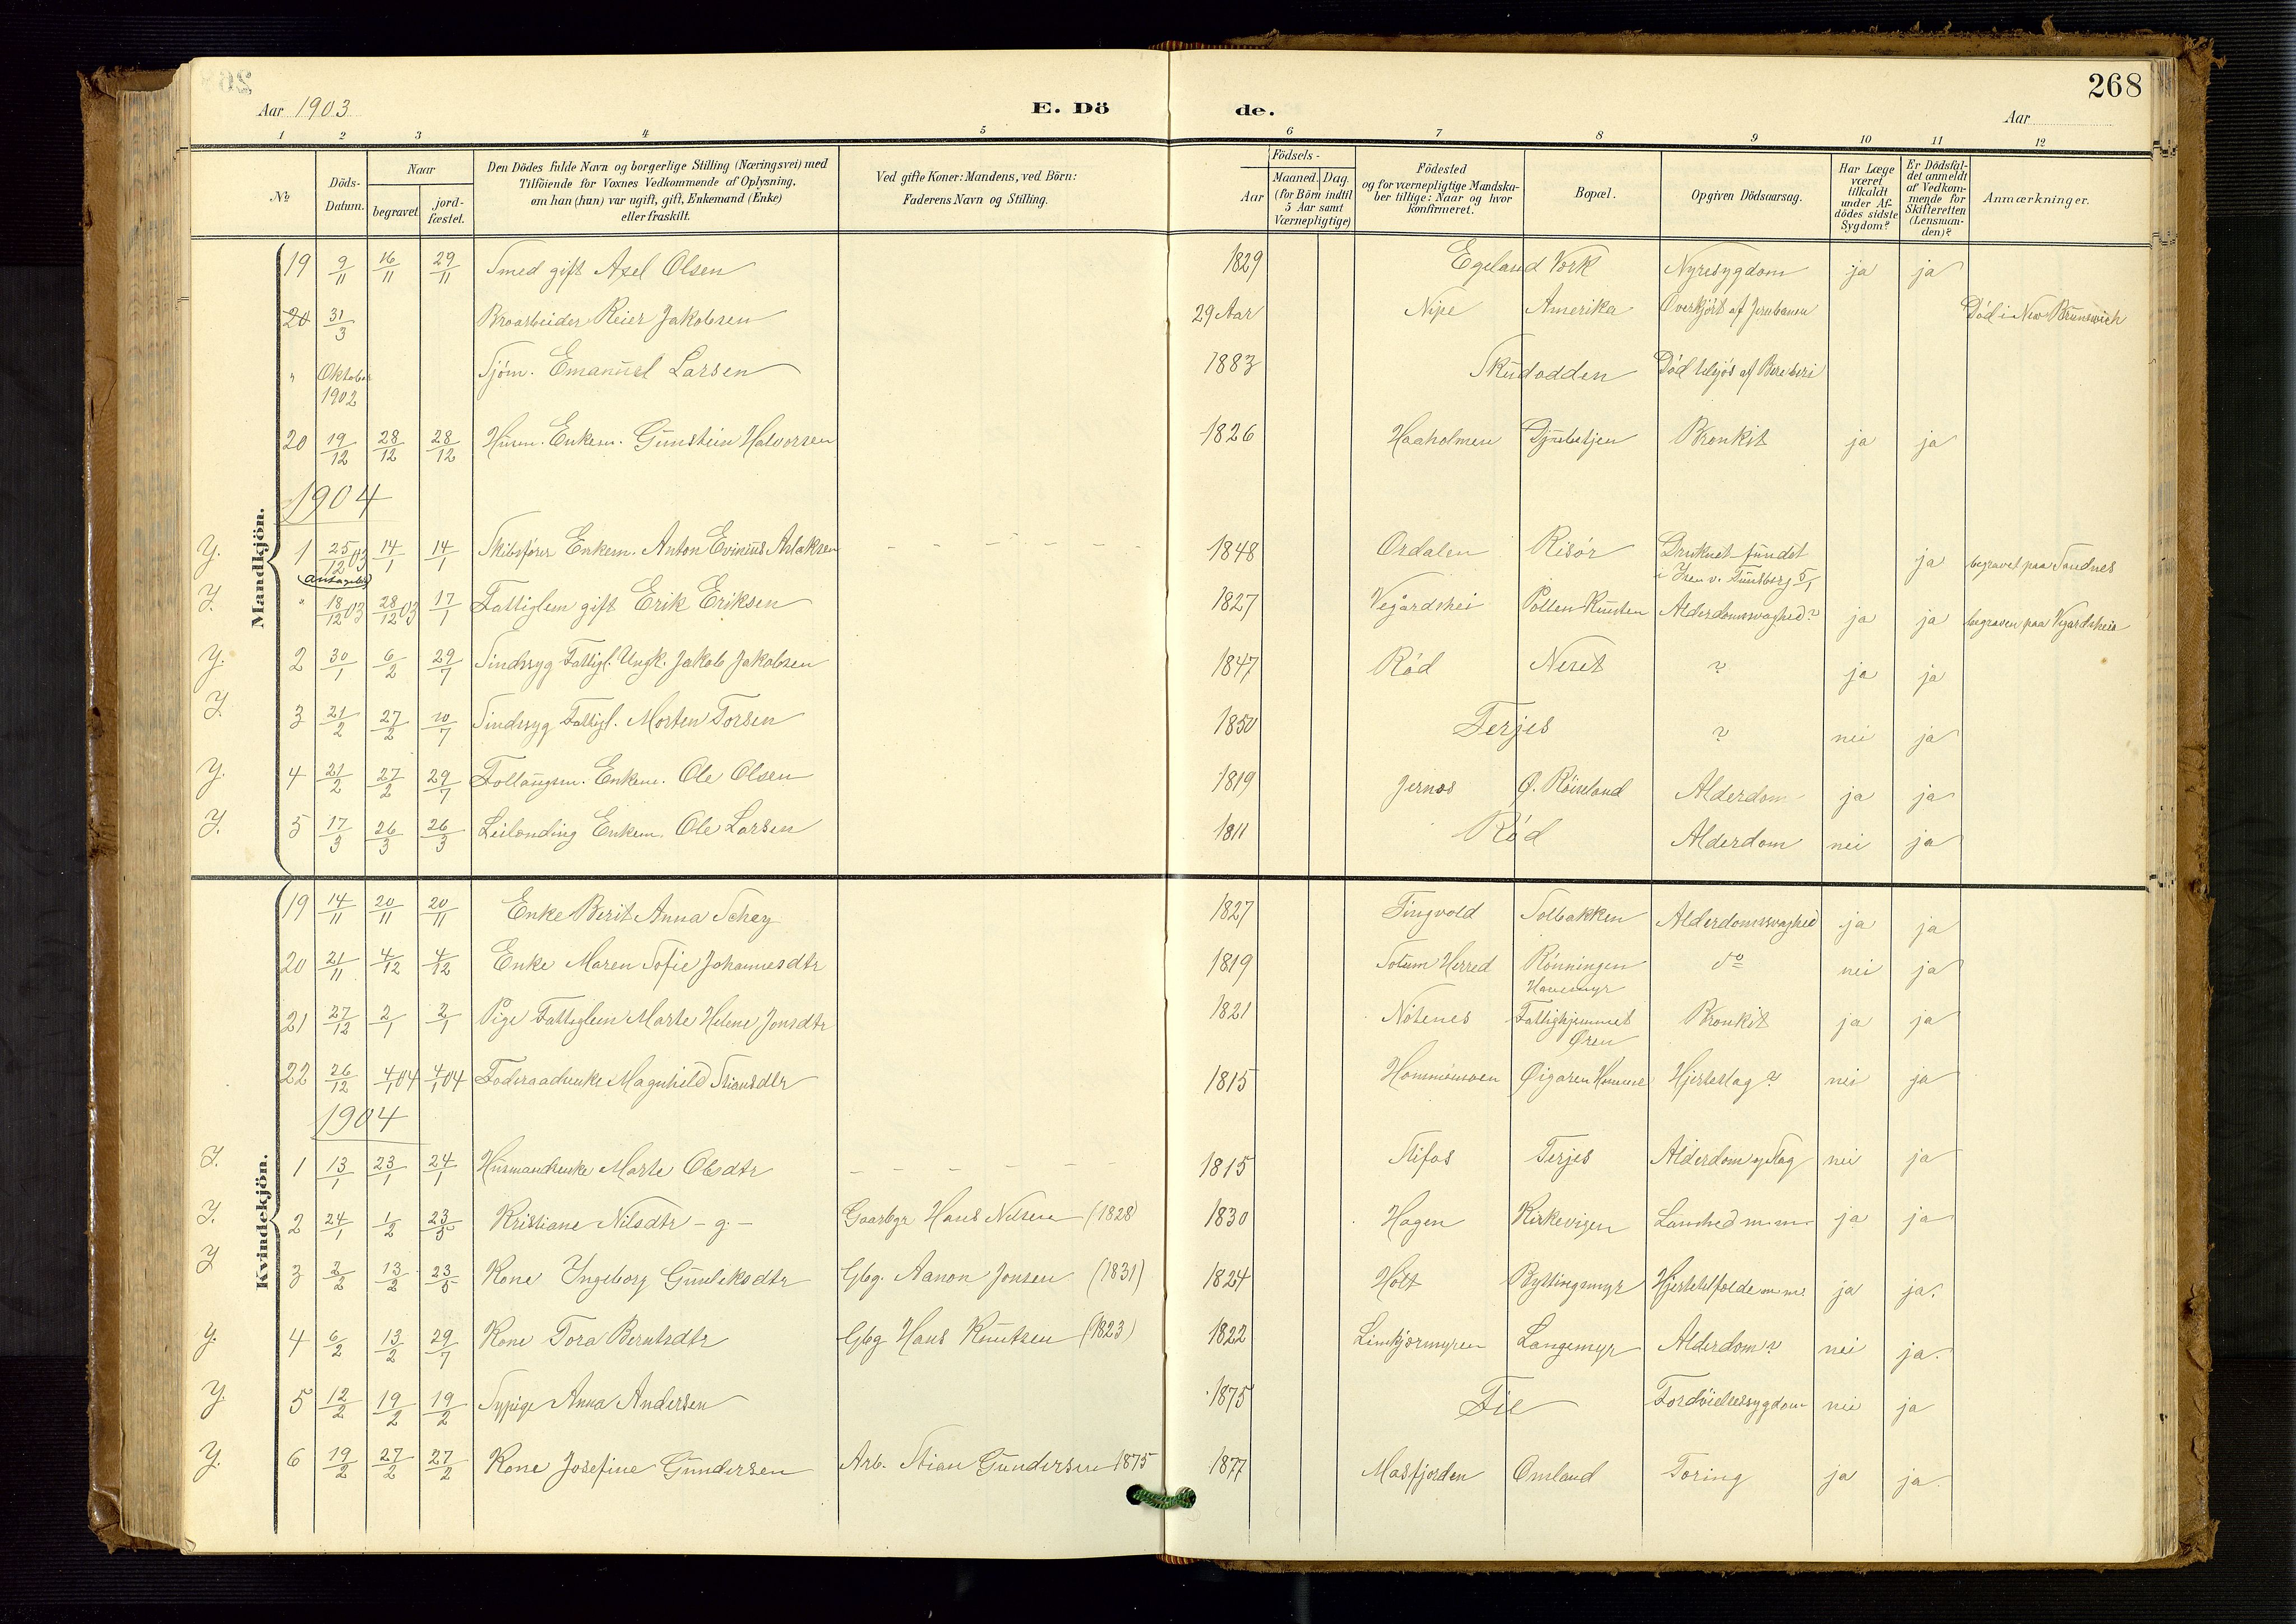 268
Aar 1903
E. Dö
de.
Aar
1 2 3 4 5 6 7 8 9 10 11 12
No
Döds-Datum.
Naar
begravet
jord-fæstet.
Den Dödes fulde Navn og borgerlige Stilling (Næringsvei) med
Tilföiende for Voxnes Vedkommende af Oplysning.
om han (hun) var ugift, gift, Enkemand (Enke)
eller fraskilt.
Ved gifte Koner: Mandens, ved Börn:
Faderens Navn og Stilling.
Födsels-
Aar
Maaned. Dag.
(for Börn indtil
5 Aar samt
Værnepligtige)
Födested
og for værnepligtige Mandska-
ber tillige: Naar og hvor
konfirmeret.
Bopæl.
Opgiven Dödsaarsag.
Har Læge
været
tilkaldt
under Af-
dödes sidste
Sygdom?
Er Dödsfal-
det anmeldt
af Vedkom-
mende for
Skifteretten
(Lensman-
den)?
Anmærkninger.
Mandkjön.
19 9/11 16/11 29/11 Smed gift Axel Olsen 1829 Egeland Verk Nyresygdom ja ja
20 31/3 Broarbeider Reier Jakobsen 29 Aar Nipe Amerika Overkjört af Jernbanen Död i New Brunswich
" Oktober 1902 Sjöm. Emanuel Larsen 1883 Skudodden Död tilsjös af Bereberi
20 19/12 28/12 28/12 Husm. Enkem. Gunstein Halvorsen 1826 Haaholmen Bronkit ja ja
1904
Y. 1 25/12 03 14/1 14/1 Skibsfører Enkem. Anton Evinius Aslaksen - - - - - - 1848 Osdalen Risör Druknet fundet
i v. Tunsberg 5/1 ja begravet paa Sandnes
(antagelig)
Y. " 18/12 03 28/12 03 17/1 Fattiglem gift Erik Eriksen 1827 Vegårdshei Pollen Alderdomssvaghed? ja ja begraven paa Vegårdsheia
Y. 2 30/1 6/2 29/7 Sindssyg Fattigl. Ungk. Jakob Jakobsen 1847 Röd Neset ? ja ja
Y. 3 21/2 27/2 10/7 Sindssyg Fattigl. Morten Torsen 1850 Terjes ? nei ja
Y. 4 21/2 27/2 29/7 Enkem. Ole Olsen 1819 Jernes Ø. Röiseland Alderdom ja ja
Y. 5 17/3 26/3 26/3 Leilending Enkem. Ole Larsen 1811 Röd Alderdom nei ja
Kvindekjön.
19 14/11 20/11 20/11 Enke Berit Anna Schey 1827 Tingvold Solbakken Alderdomssvaghed ja ja
20 21/11 4/12 4/12 Enke Maren Sofie Johannesdtr 1819 Herred Rönningen do nei ja
21 27/12 2/1 2/1 Pige Fattiglem Marte Helene Jonsdtr 1821 Nötenes Fattighjemmet
Øren Bronkit ja ja
22 26/12 4/1 04 4/1 04 Föderaadsenke Magnhild Stiansdtr 1815 Hommemoen Øigaren Homme Hjerteslag? nei ja
1904
Y. 1 13/1 23/1 24/1 Husmandsenke Marte Olsdtr - - - - - - 1815 Stifos Terjes Alderdom og Slag nei ja
Y. 2 24/1 1/2 23/5 Kristiane Nilsdtr - g. - Gaarbgr Hans Nilsen (1828) 1830 Hagen Kirkevigen Lamhed m. m. ja ja
Y 3 2/2 13/2 23/5 Kone Ingeborg Gunleksdtr Gbg. Aanon Jonsen (1831) 1824 Holt Byttingsmyr Hjertetilfælde m m. ja ja.
Y. 4 6/2 13/2 29/7 Kone Tora Berntsdtr Gbg Hans Knutsen (1823) 1822 Limkjærmyren Langemyr Alderdom? nei ja.
Y. 5 12/2 19/2 19/2 Sypige Anna Andersen 1875 Fie Fordöielsessygdom nei ja
Y. 6 19/2 27/2 27/2 Kone Josefine Gundersen Arb. Stian Gundersen 1875 1877 Masfjorden Omland Tæring ja ja.